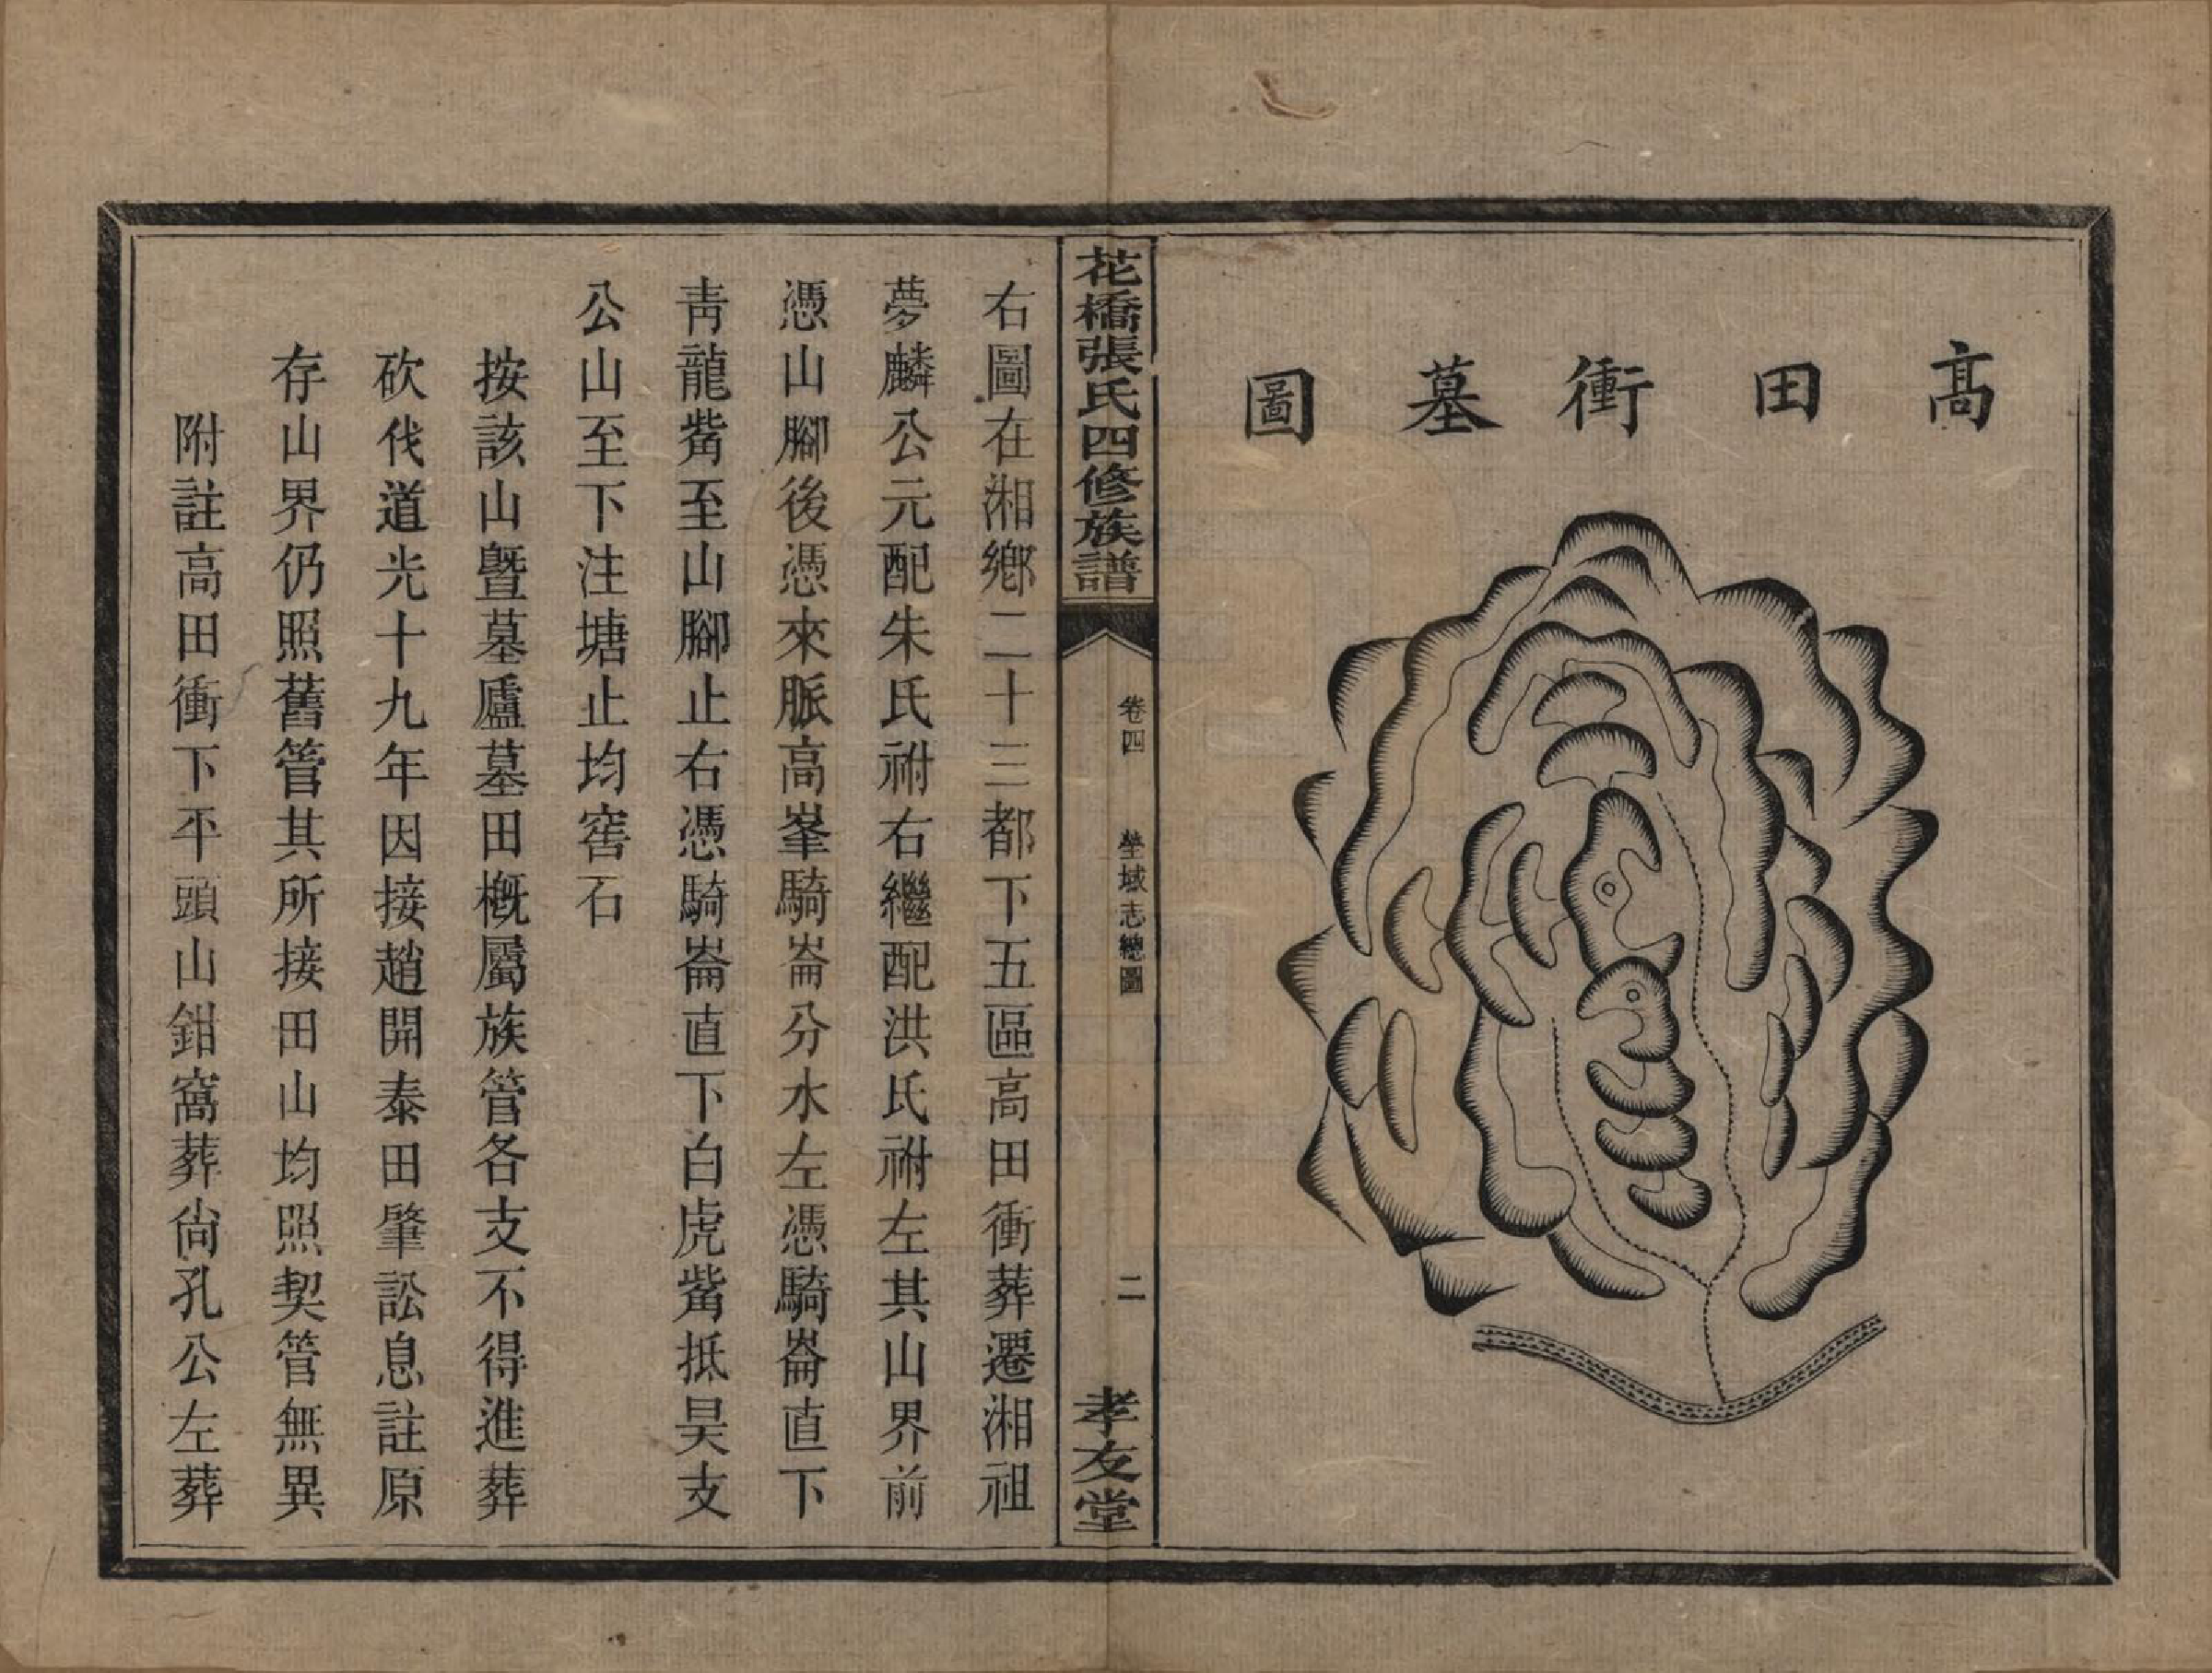 高田衝墓圖
花橋張氏四修族譜
卷四
塋域志總圖
二
孝友堂
右圖在湘鄉二十三都下五區高田衝葬遷湘祖
夢麟公元配朱氏祔右繼配洪氏祔左其山界前
憑山腳後憑來脈高峯騎崙分水左憑騎崙直下
靑龍觜至山腳止右憑騎崙直下白虎觜抵昊支
公山至下注塘止均窖石
按該山曁墓廬墓田槪屬族管各支不得進葬
砍伐道光十九年因接趙開泰田肇訟息註原
存山界仍照舊管其所接田山均照契管無異
附註高田衝下平頭山鉗窩葬尙孔公左葬